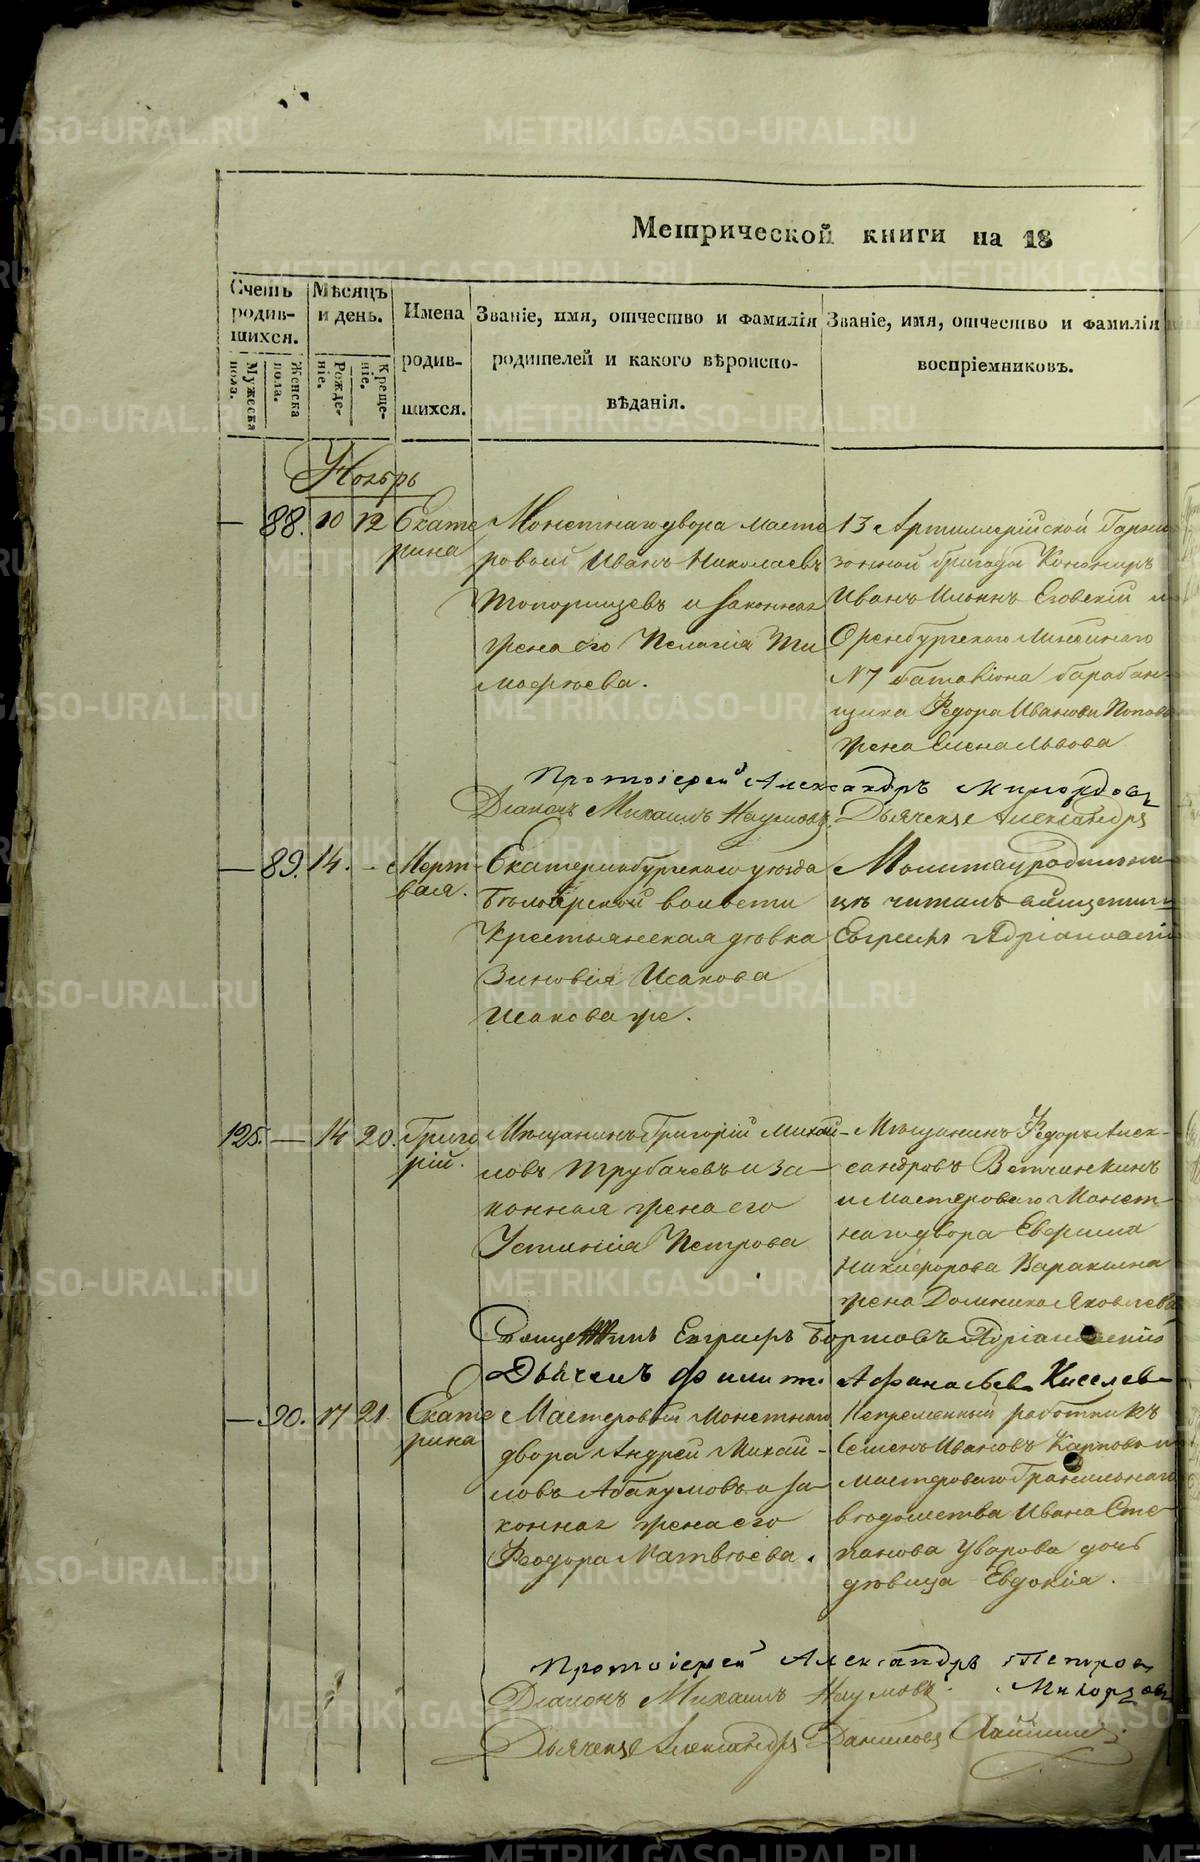 Метрической книги на 18
Счетъ родив-шихся.
Мѣсяцъ и день.
Имена родив-шихся.
Званіе, имя, отчество и фамилія родителей и какого вѣроиспо-вѣданія.
Званіе, имя, отчество и фамилія воспріемниковъ.
Мужеска пола.
Женска пола.
Рожде-ніе.
Креще-ніе.
Ноябрь
— 88. 10 12 Екате
рина
Монетнаго двора масте
ровой Иванъ Николаевъ
Топорищевъ и законная
жена его Пелагія Ти
мофѣева.
13 Артиллерійской Гарни
зонной бригады Канониръ
Иванъ Ильинъ и
Оренбургскаго Линейнаго
N 7 баталіона барабан-
щика Федора Иванова Попова
жена Елена Львова
Протоіерей Александръ
Діаконъ Михаилъ Наумовъ. Дьячекъ Александръ
— 89. 14. - Мерт-
вая.
Екатеринбургскаго уѣзда
Бѣлоярской волости
Крестьянская дѣвка
Зиновія Исакова
Исакова же.
Молитву родильни
цѣ читалъ священникъ
Евграфъ
125. — 14 20. Григо
рій.
Мѣщанинъ Григорій Михай-
ловъ Трубачевъ и за
конная жена его
Устинія Петрова
Мѣщанинъ Федоръ Алек-
сандровъ Ветчинкинъ
и мастероваго Монет-
наго двора Ефима
Никифорова Варакина
жена Домника Яковлева
Священникъ Евграфъ
Дьячекъ Филипп. Афанасьев Киселев
— 90. 17 21. Екате
рина
Мастеровый Монетнаго
двора Андрей Михай-
ловъ Абакумовъ и за
конная жена его
Феодора Матвѣева.
Непремѣнный работникъ
Семенъ Ивановъ Карповъ и
мастероваго Гранильнаго
вѣдомства Ивана Сте
панова Уварова дочь
дѣвица Евдокія.
Протоіерей Александръ Петров
Діаконъ Михаилъ Наумовъ.
Дьячекъ Александръ Даниловъ
METRIKI.GASO-URAL.RU